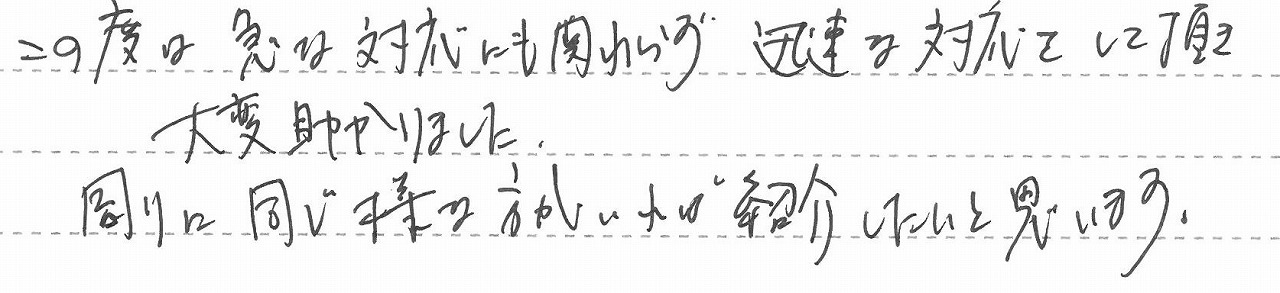 この度は急な対応にも関わらず 迅速な対応をして頂き
大変助かりました.
周りに同じ様な方がいれば紹介したいと思います.